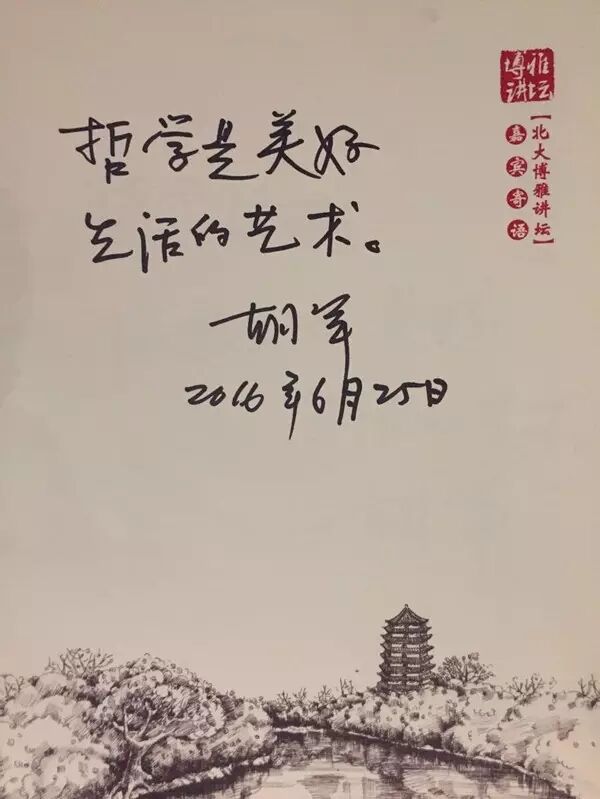 博雅讲坛
【北大博雅讲坛】
嘉宾寄语
哲学是美好
生活的艺术。
胡军
2016年6月25日